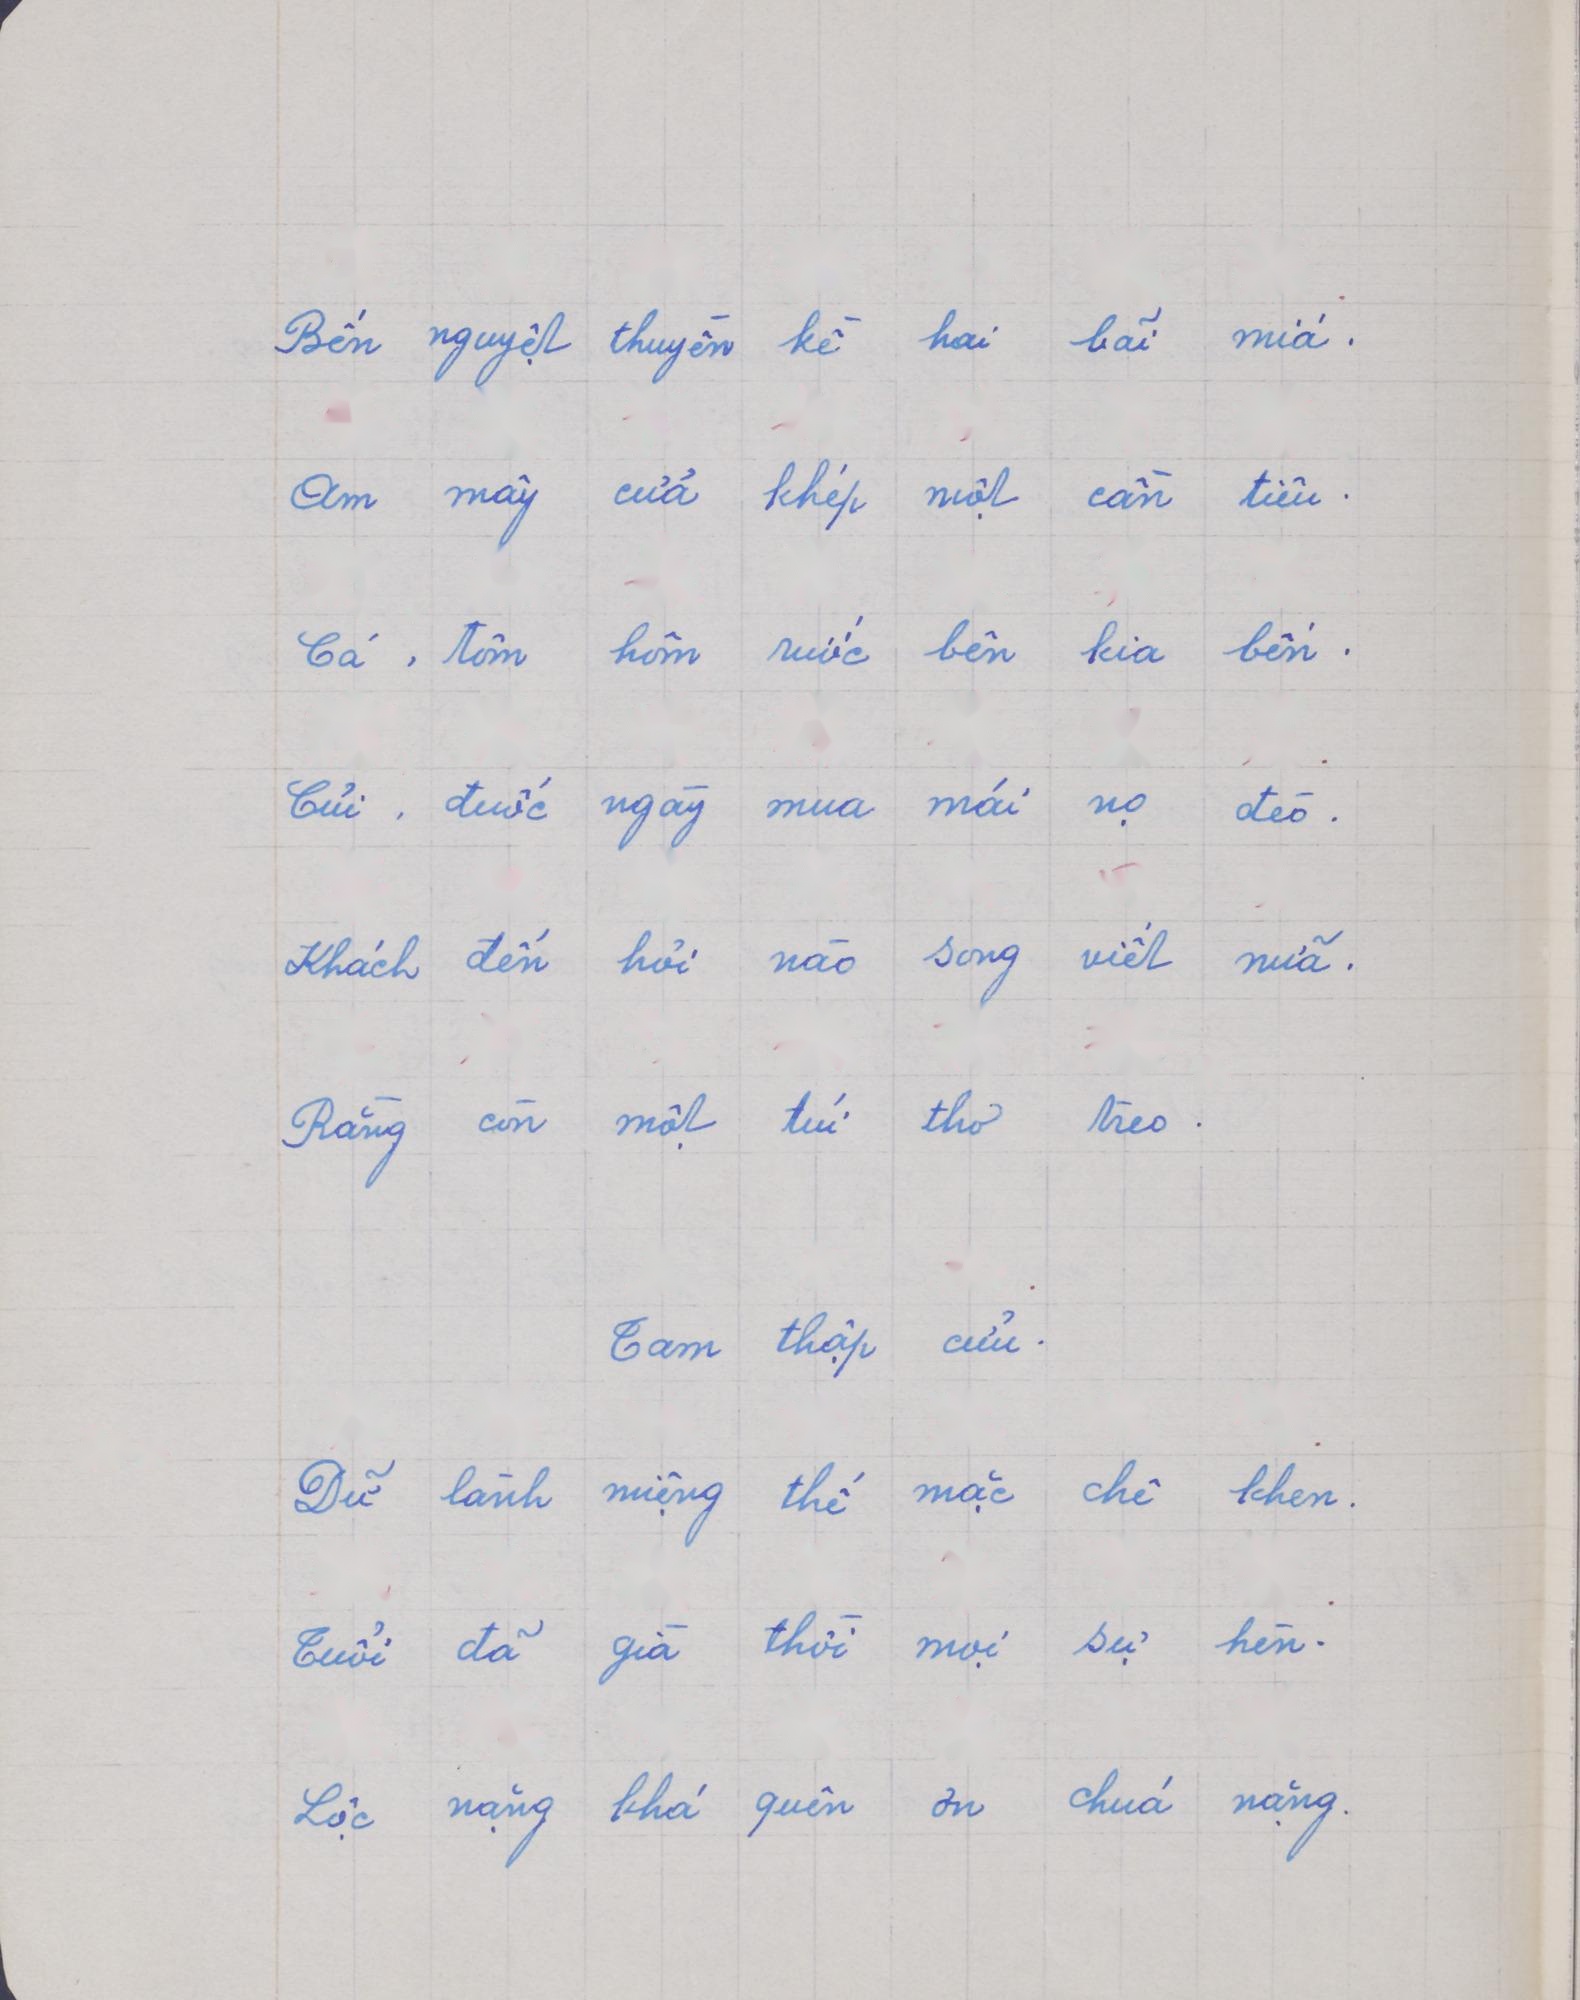 Bến nguyệt thuyền kề hai bãi miá.
Am mây cửa khép một cần tiêu.
Cá, tôm hôm rước bên kia bến.
Củi, đuốc ngày mua mái nọ đèo.
Khách đến hỏi nào song viết nữa.
Rằng còn một túi thơ treo.
Tam thập cửu.
Dữ lành miệng thế mặc chê khen.
Tuổi đã già thôi mọi sự hèn.
Lộc nặng khá quên ơn chuá nặng.